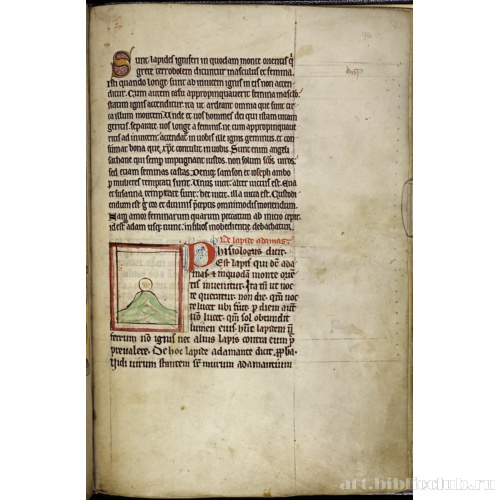 Sunt lapides igniferi in quodam monte orientis q̄
grece terrobolem dicuntur masculus et femina.
isti quando longe sunt ab invicem ignis in eis non accen
ditur. Cum autem casu appropinquaverit femina masculo
statim ignis accenditur. ita ut ardeant omnia que sunt cir
ca illum montem. Unde et vos homines dei qui istam vitam
geritis. separate vos longe a feminis. ne cum appropinquave
ritis ad invicem. accendat in vobis ille ignis geminus. et con
sumat bona que xp̄c contulit in vobis. Sunt enim angeli
sathane qui semp impugnant iustos. non solum scōs viros.
sed etiam feminas castas. Deniq; samson et ioseph ambo
p mulieres temptati sunt. Unus vicit. alter victus est. Eva
et susanna temptate sunt. hec vicit. illa victa est. Custodi
endum est g cor et divinis pceptis omnimodis monendum.
Nam amor feminarum quarum peccatum ab inicio cepit.
id est adam usq; nunc in filios inobedientie debachatur.
De lapide adamas.
Phisiologus dicit.
Est lapis qui dr̄ ada
mas. inquodam monte orien
tis invenitur. Ita tn̄ ut noc
te queratur. non die. qm̄ noc
te lucet ubi fuerit. p diem aut
non lucet. qm̄ sol obtundit
lumen eius. hunc lapidem
ferrum nō ignis nec alius lapis contra eum p
prevalere. De hoc lapide adamante dicit. ppha.
Vidi virum stantem sr̄ murum adamantium
art.biblioclub.ru